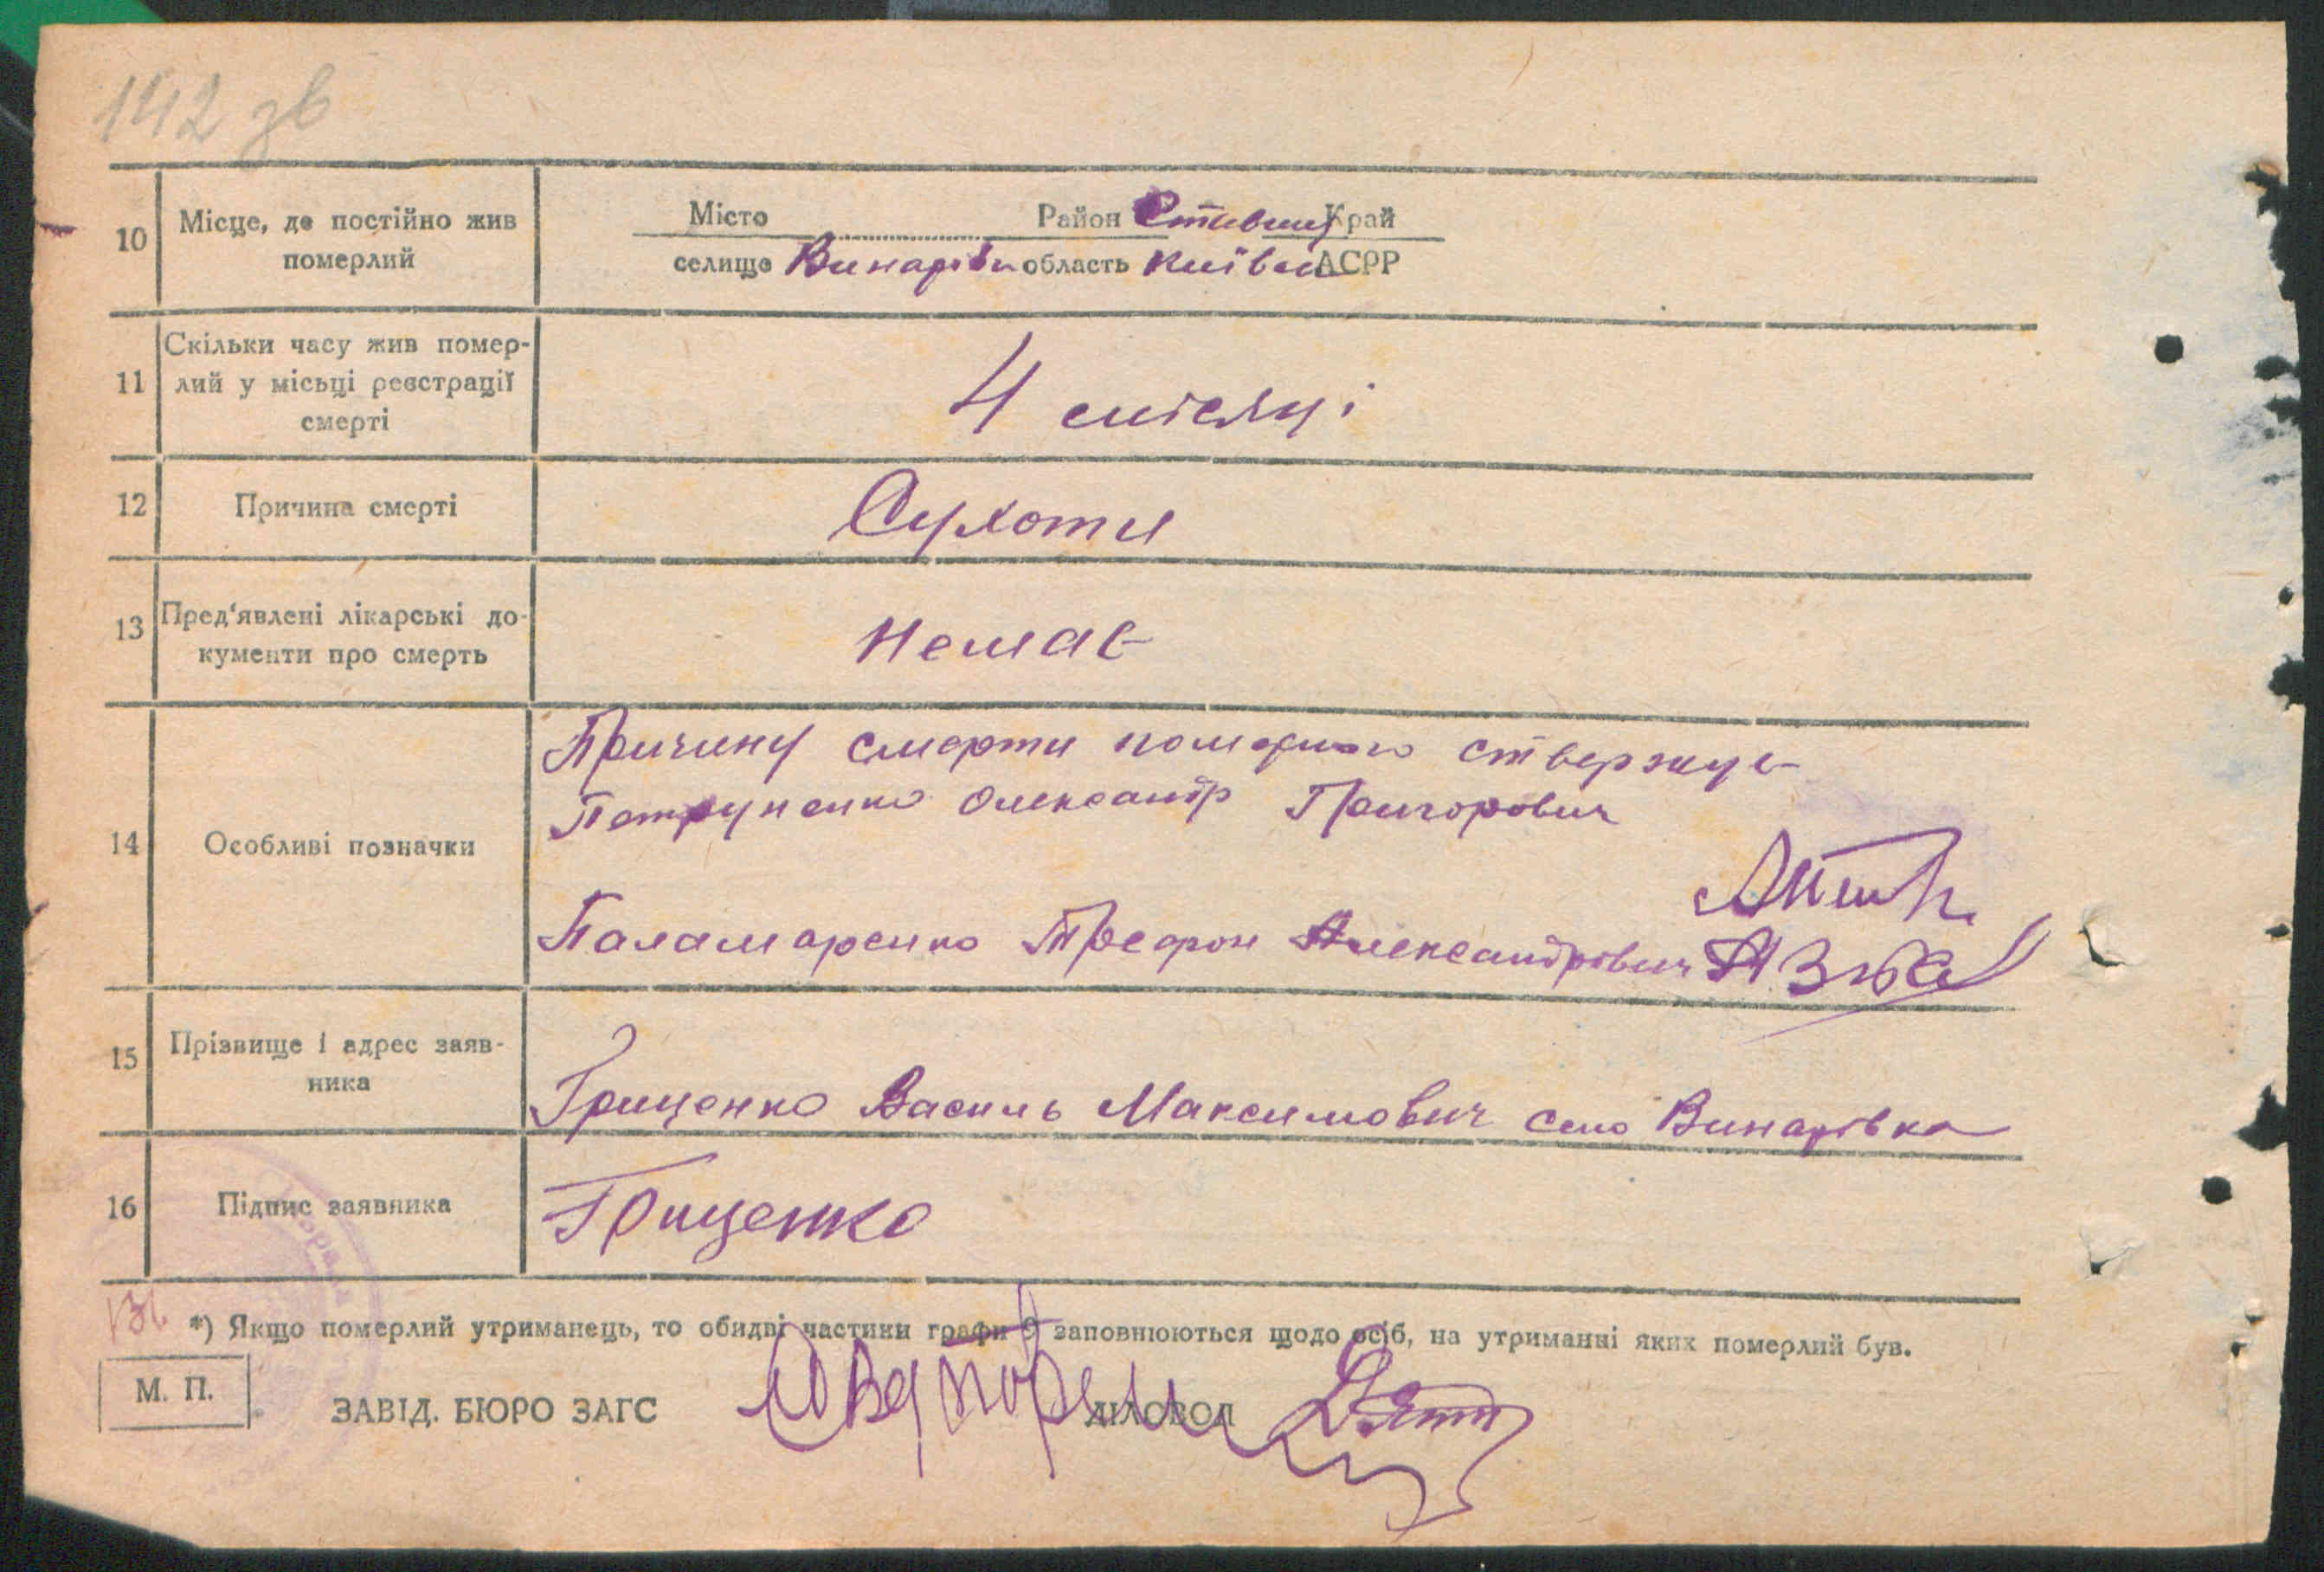 142 зв
10 Місце, де постійно жив померлий
Місто Район Ставищ Край
селище Винарівка область Київськ АСРР
11 Скільки часу жив помер-
лий у місьці реєстрації
смерті
4 місяці
12 Причина смерті
Сухоти
13 Пред'явлені лікарські до-
кументи про смерть
Немає
14 Особливі позначки
Причину смерти помершого ствержує
Петруненко Олександр Григорович
Паламаренко Александрович
15 Прізвище і адрес заяв-
ника
Гриценко Василь Максимович село Винарівка
16 Підпис заявника
Гриценко
*) Якщо померлий утриманець, то обидві частини графи 9 заповнюються щодо осіб, на утриманні яких померлий був.
М. П.
ЗАВІД. БЮРО ЗАГС ДІЛОВОД